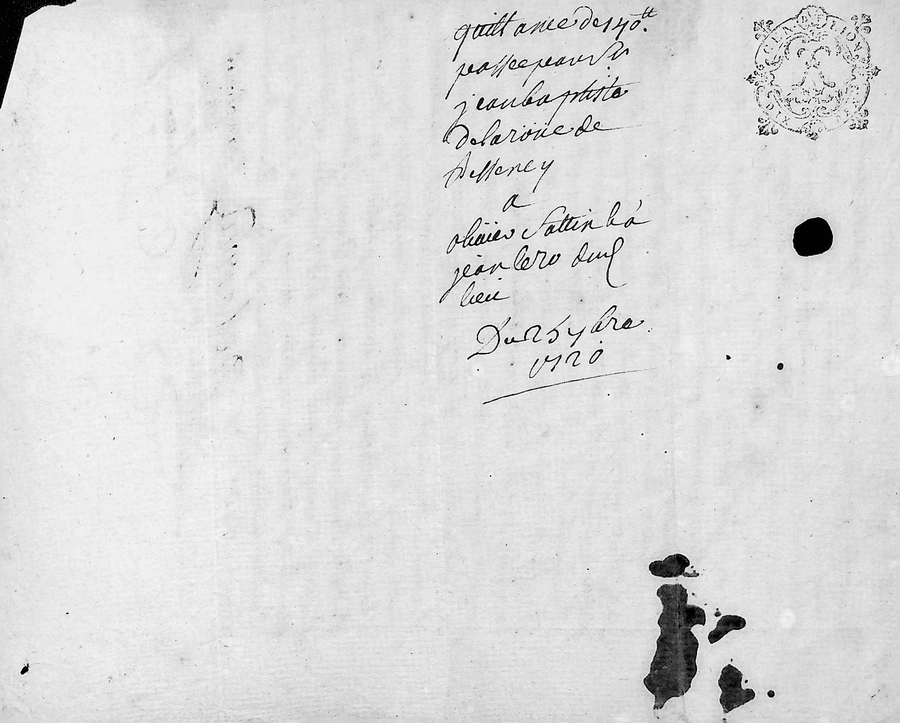 quittance de 140tt
passee par Sr
jean baptiste
delaroüe de
a
olivier Sattin &
jean lero dud
lieu
Du 25 7bre
1720